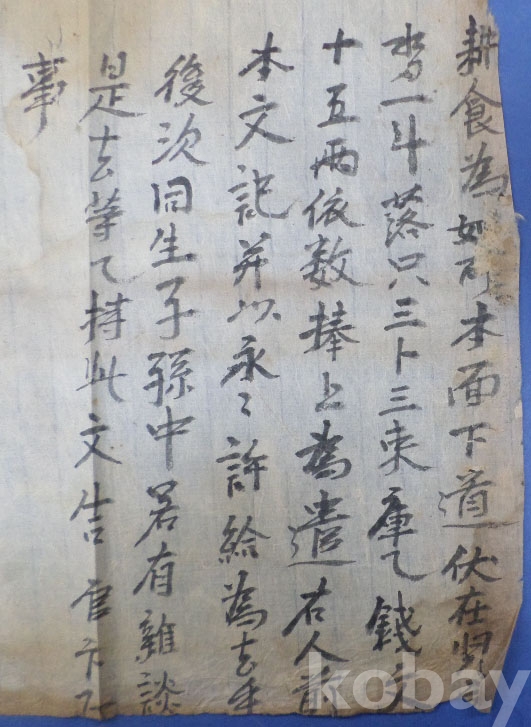 耕食為如可本面下道伏在
畓一斗落只三卜三束庫乙錢文
十五兩依数捧上為遣右人前
本文記并以永〻許給為去乎
後次同生子孫中若有雜談
是去等乙持此文告官卞正
事
kobay